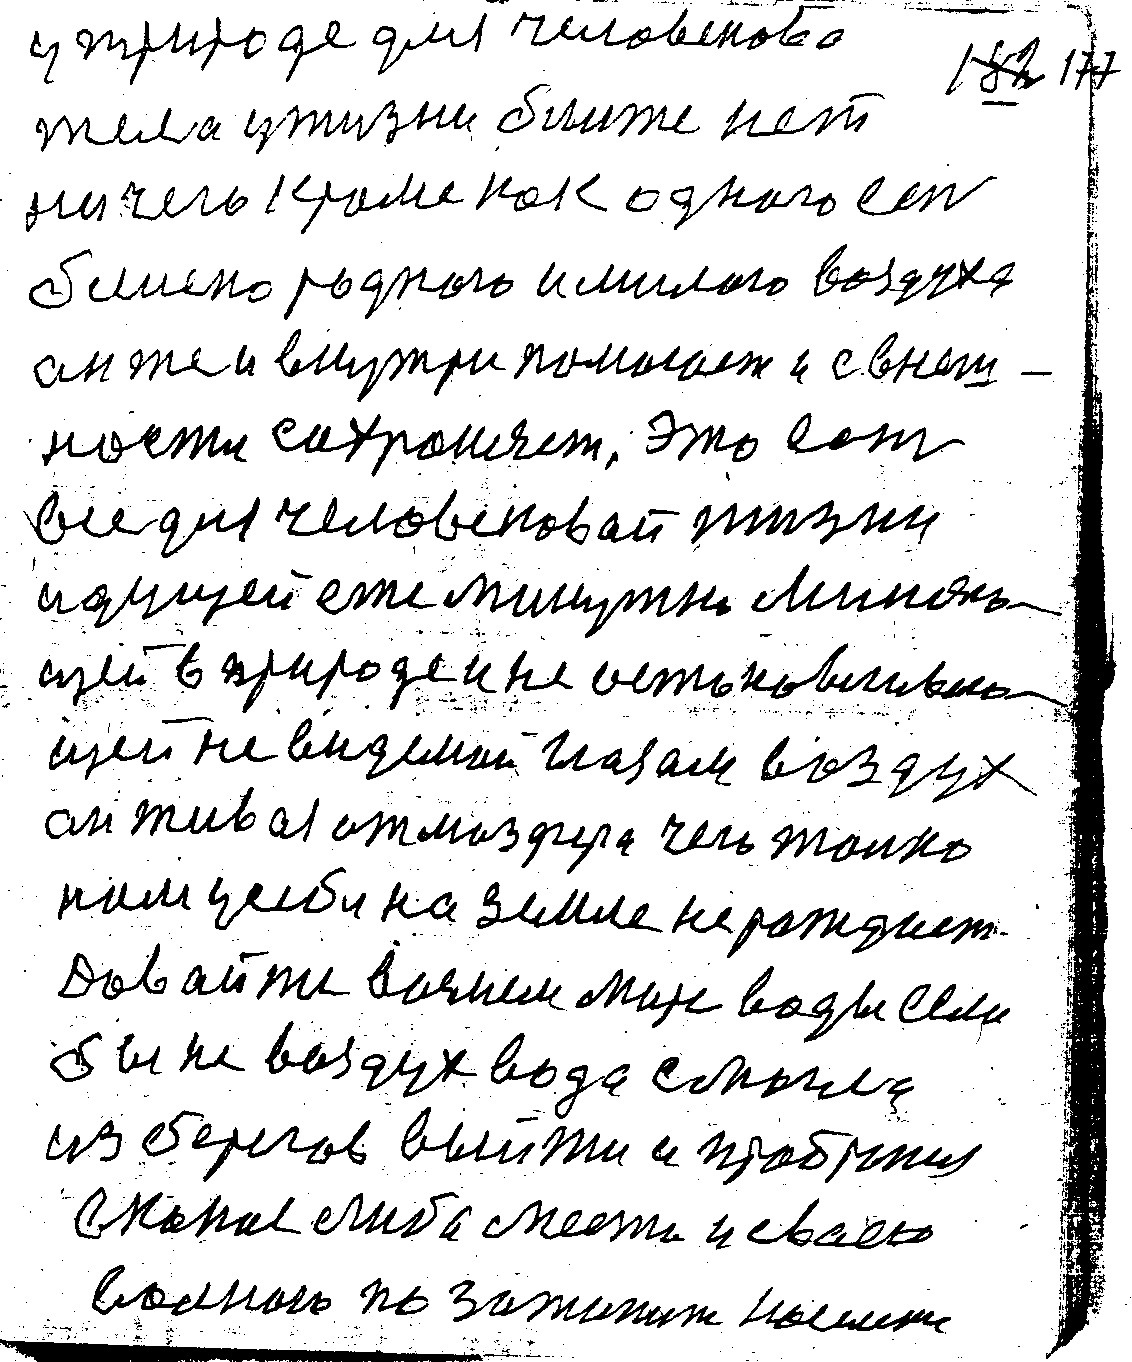 у природе для человекова
182 177
тела у жизни ближе нет
ничего кроме как одного ест
близко родного и милого воздуха
он же и внутри помогает и с внеш-
ности сохраняет, это ест
все для человековай жизни
идущей ежеминутно
щей в природе и не остоновливаю
щей не видемой глазам воздух
он живая отмоздфера чего толко
нам у себя на земле не рождает
Довайте возмем море воды если
бы не воздух вода смогла
из берегов выйти и пробратся
в какое либа место и сваею
волною по затопит